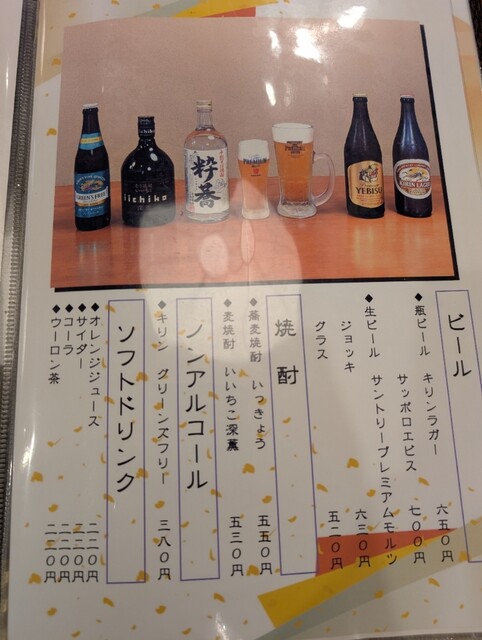 ビール
◆瓶ビール キリンラガー 六五〇円
サッポロエビス 七〇〇円
◆生ビール サントリープレミアムモルツ
ジョッキ 六三〇円
グラス 五二〇円
焼酎
◆蕎麦焼酎 いっきょう 五五〇円
◆麦焼酎 いいちこ深薫 五三〇円
ノンアルコール
◆キリン グリーンズフリー 三八〇円
ソフトドリンク
◆オレンジジュース 二二〇円
◆サイダー 二二〇円
◆コーラ 二二〇円
◆ウーロン茶 二二〇円
iichiko
粋蕎
PREMIUM
YEBISU
KIRIN LAGER